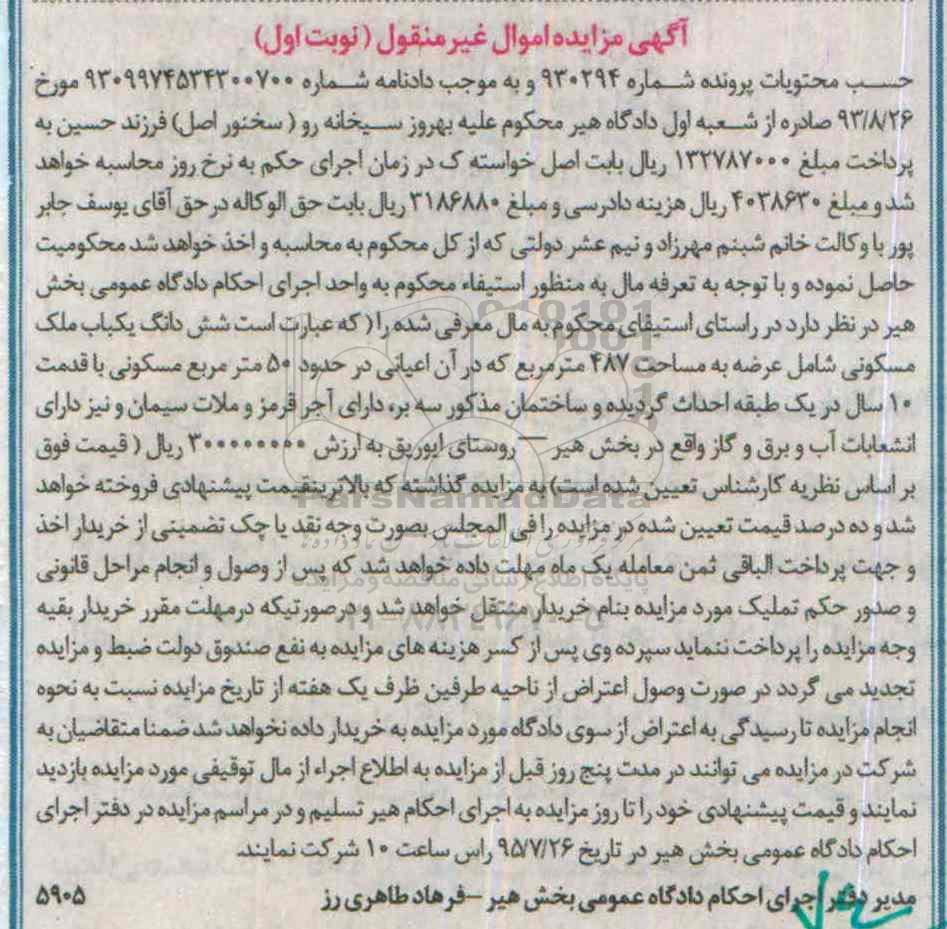 آگهی مزایده اموال غیر منقول (نوبت اول)
حسب محتویات پرونده شماره ۹۳۰۲۹۴ و به موجب دادنامه شماره ۹۳۰۹۹۷۴۵۳۴۳۰۰۷۰۰ مورخ
۹۳/۸/۲۶ صادره از شعبه اول دادگاه هیر محکوم علیه بهروز سیخانه رو ( سخنور اصل) فرزند حسین به
پرداخت مبلغ ۱۳۲۷۸۷۰۰۰ ریال بابت اصل خواسته ک در زمان اجرای حکم به نرخ روز محاسبه خواهد
شد و مبلغ ۴۰۳۸۶۳۰ ریال هزینه دادرسی و مبلغ ۳۱۸۶۸۸۰ ریال بابت حق الوکاله در حق آقای یوسف جابر
پور با وکالت خانم شبنم مهرزاد و نیم عشر دولتی که از کل محکوم به محاسبه و اخذ خواهد شد محکومیت
حاصل نموده و با توجه به تعرفه مال به منظور استیفاء محکوم به واحد اجرای احکام دادگاه عمومی بخش
هیر در نظر دارد در راستای استیفای محکوم به مال معرفی شده را ( که عبارت است شش دانگ یکباب ملک
مسکونی شامل عرضه به مساحت ۴۸۷ مترمربع که در آن اعیانی در حدود ۵۰ متر مربع مسکونی با قدمت
۱۰ سال در یک طبقه احداث گردیده و ساختمان مذکور سه بر، دارای آجر قرمز و ملات سیمان و نیز دارای
انشعابات آب و برق و گاز واقع در بخش هیر – روستای اپوریق به ارزش ۳۰۰۰۰۰۰۰۰ ریال ( قیمت فوق
بر اساس نظریه کارشناس تعیین شده است) به مزایده گذاشته که بالاترینقیمت پیشنهادی فروخته خواهد
شد و ده درصد قیمت تعیین شده در مزایده را فی المجلس بصورت وجه نقد یا چک تضمینی از خریدار اخذ
و جهت پرداخت الباقی ثمن معامله یک ماه مهلت داده خواهد شد که پس از وصول و انجام مراحل قانونی
و صدور حکم تملیک مورد مزایده بنام خریدار منتقل خواهد شد و درصورتیکه درمهلت مقرر خریدار بقیه
وجه مزایده را پرداخت ننماید سپرده وی پس از کسر هزینه های مزایده به نفع صندوق دولت ضبط و مزایده
تجدید می گردد در صورت وصول اعتراض از ناحیه طرفین ظرف یک هفته از تاریخ مزایده نسبت به نحوه
انجام مزایده تا رسیدگی به اعتراض از سوی دادگاه مورد مزایده به خریدار داده نخواهد شد ضمنا متقاضیان به
شرکت در مزایده می توانند در مدت پنج روز قبل از مزایده به اطلاع اجراء از مال توقیفی مورد مزایده بازدید
نمایند و قیمت پیشنهادی خود را تا روز مزایده به اجرای احکام هیر تسلیم و در مراسم مزایده در دفتر اجرای
احکام دادگاه عمومی بخش هیر در تاریخ ۹۵/۷/۲۶ راس ساعت ۱۰ شرکت نمایند.
مدیر دفتر اجرای احکام دادگاه عمومی بخش هیر – فرهاد طاهری رز
۵۹۰۵
ParsNamadData